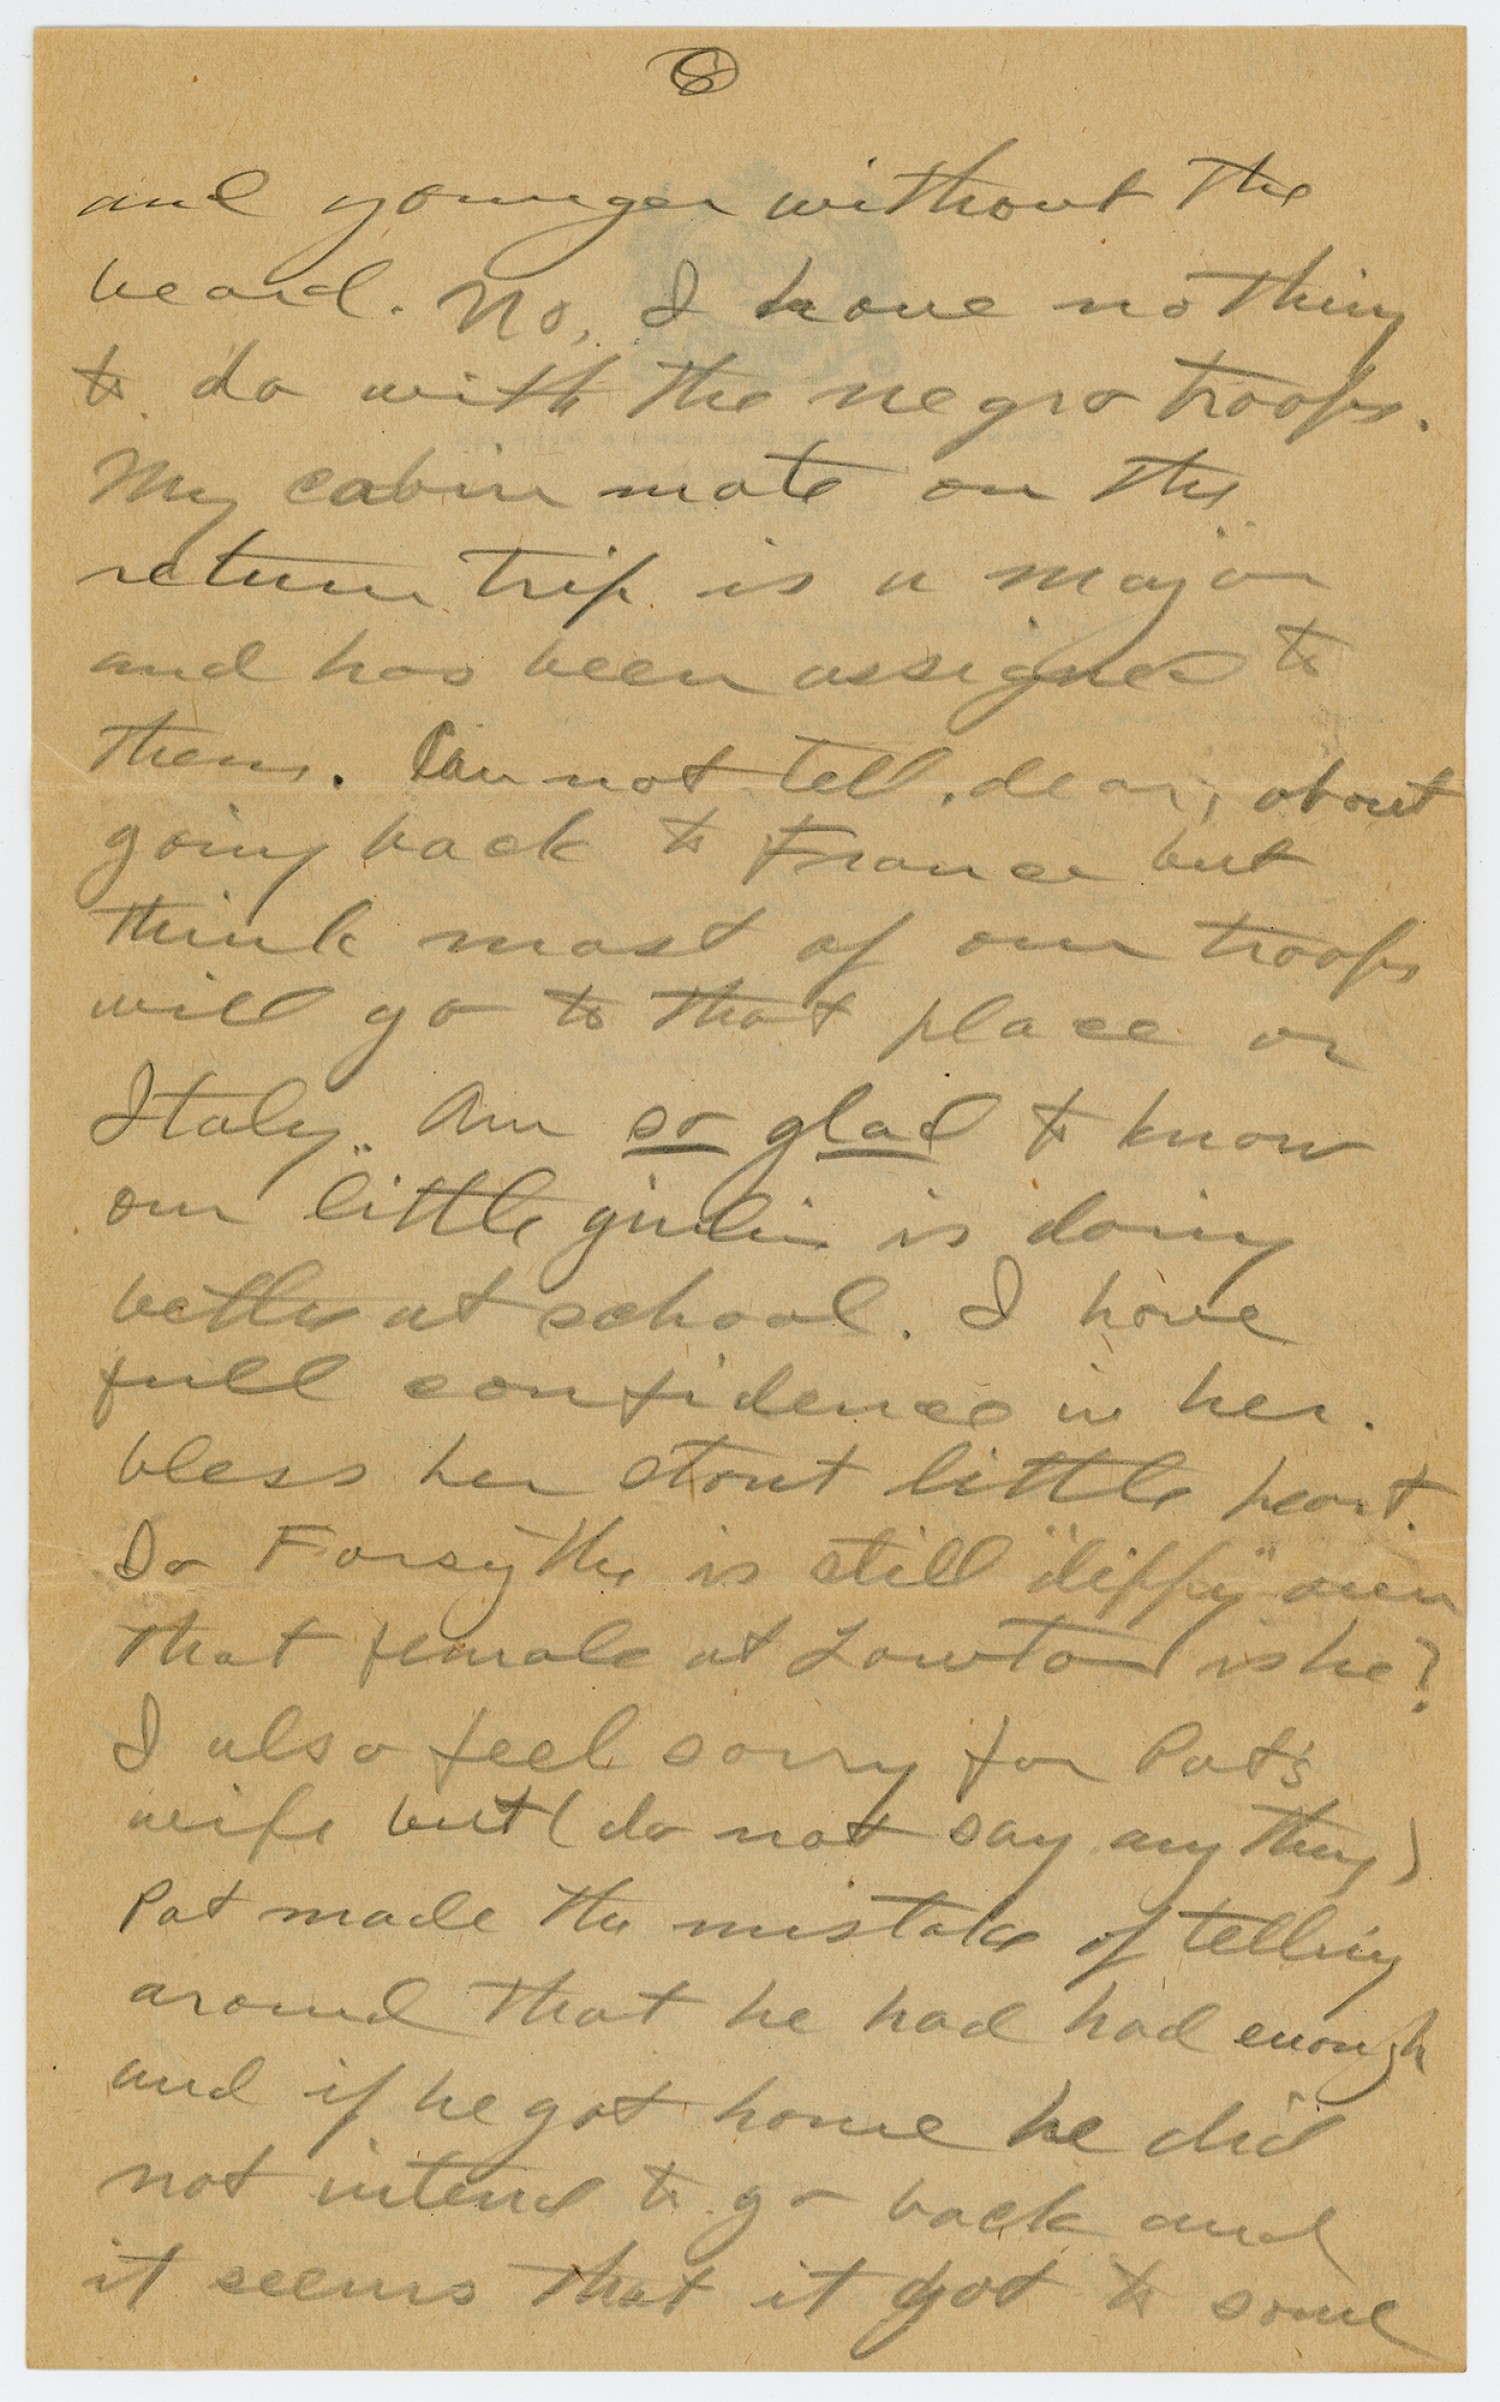 8
and younger without the
beard. No, I have nothing
to do with the negro troops.
My cabin mate on the
return trip is a major
and has been assigned to
them. Can not tell, dear, about
going back to France but
think most of our troops
will go to that place or
Italy. Am so glad to know
our little girlie is doing
better at school. I have
full confidence in her.
bless her stout little heart.
So Forsythe is still "dippy" over
that female at Lawton is he?
I also feel sorry for Pat's
wife but (do not say anything)
Pat made the mistake of telling
around that he had had enough
and if he got home he did
not intend to go back and
it seems that it got to some